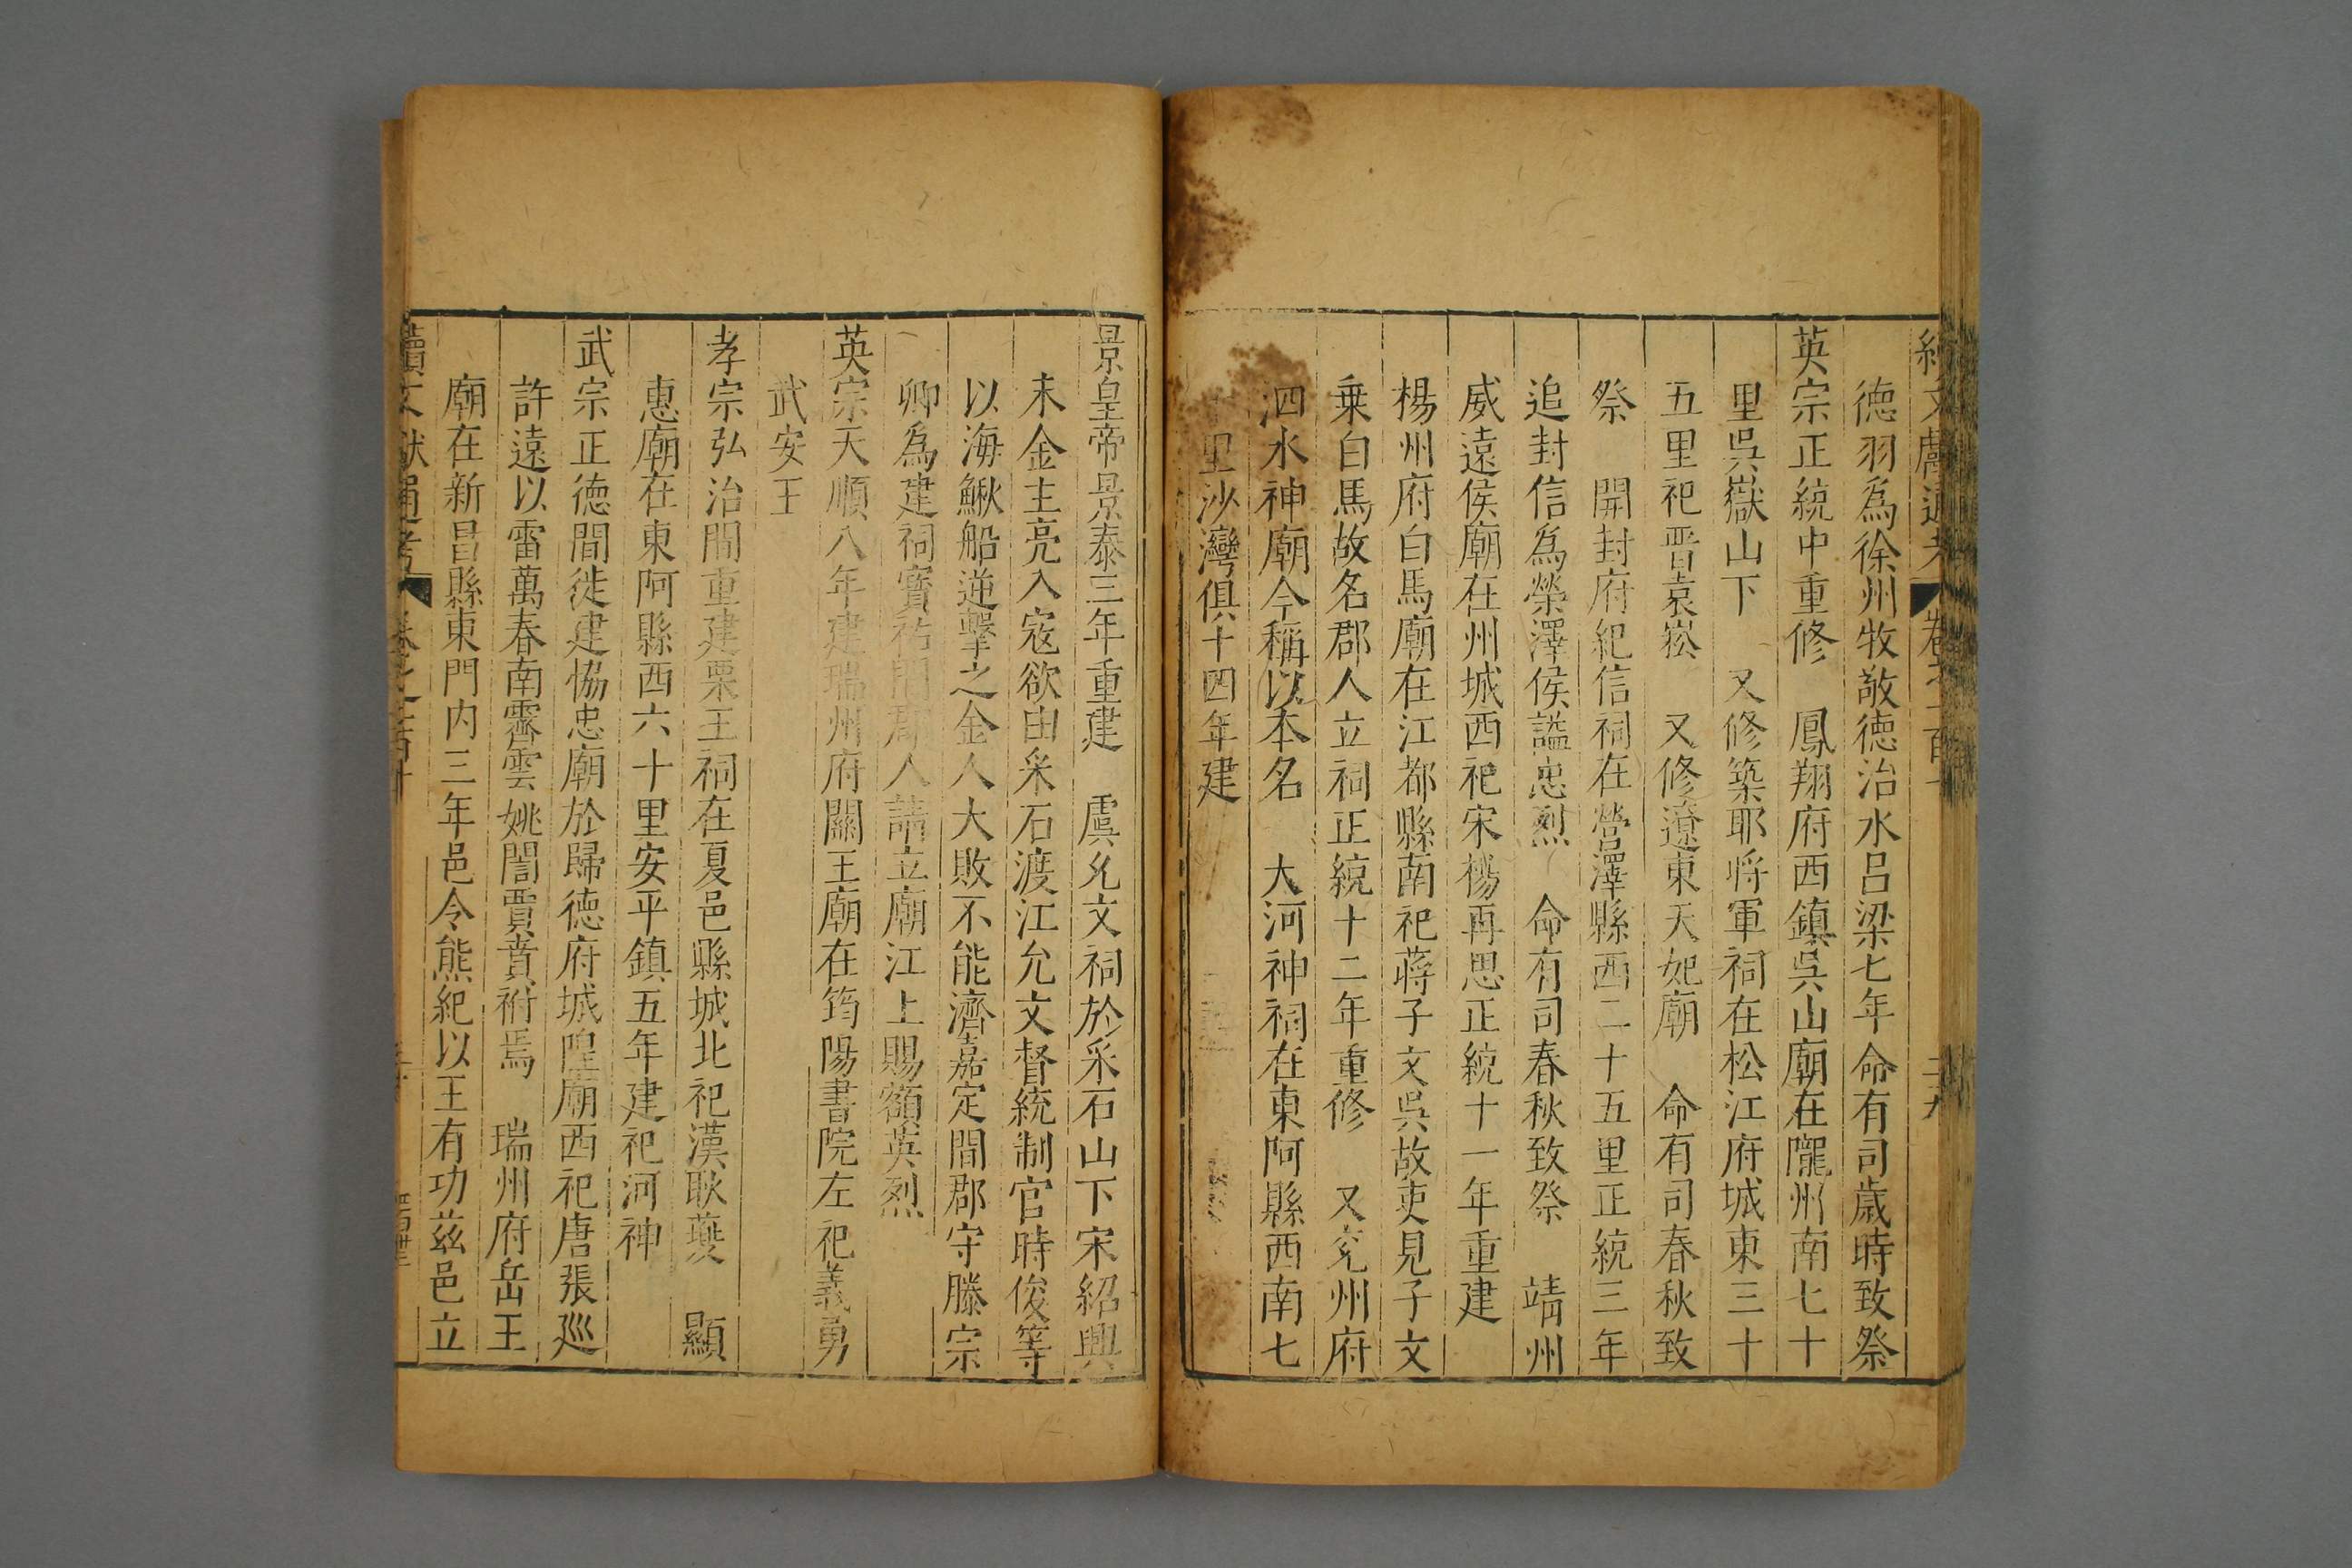 德羽爲徐州牧敬德治水呂梁七年命有司歲時致祭
英宗正統中重修 鳳翔府西鎮吳山廟在隴州南七十
里吳嶽山下 又修築耶將軍祠在松江府城東三十
五里祀晉袁崧 又修遼東天妃廟 命有司春秋致
祭 開封府紀信祠在營澤縣西二十五里正統三年
追封信爲榮澤侯謚忠烈 命有司春秋致祭 靖州
威遠侯廟在州城西祀宋楊再思正統十一年重建
楊州府白馬廟在江都縣南祀蔣子文吳故吏見子文
乗白馬故名郡人立祠正統十二年重修 又兖州府
泗水神廟今稱以本名 大河神祠在東阿縣西南七
里沙灣俱十四年建
景皇帝景泰三年重建 虞允文祠於采石山下宋紹興
末金主亮入寇欲由采石渡江允文督統制官時俊等
以海鰍船逆擊之金人大敗不能濟嘉定間郡守滕宗
卿爲建祠寳祐間郡人請立廟江上賜額英烈
英宗天順八年建瑞州府關王廟在筠陽書院左祀義勇
武安王
孝宗弘治間重建栗王祠在夏邑縣城北祀漢耿蘷 顯
惠廟在東阿縣西六十里安平鎮五年建祀河神
武宗正德間徙建恊忠廟於歸德府城隍廟西祀唐張廵
許遠以雷萬春南霽雲姚誾賈賁祔焉 瑞州府岳王
廟在新昌縣東門内三年邑令熊紀以王有功兹邑立
續文獻通考 卷之一百十